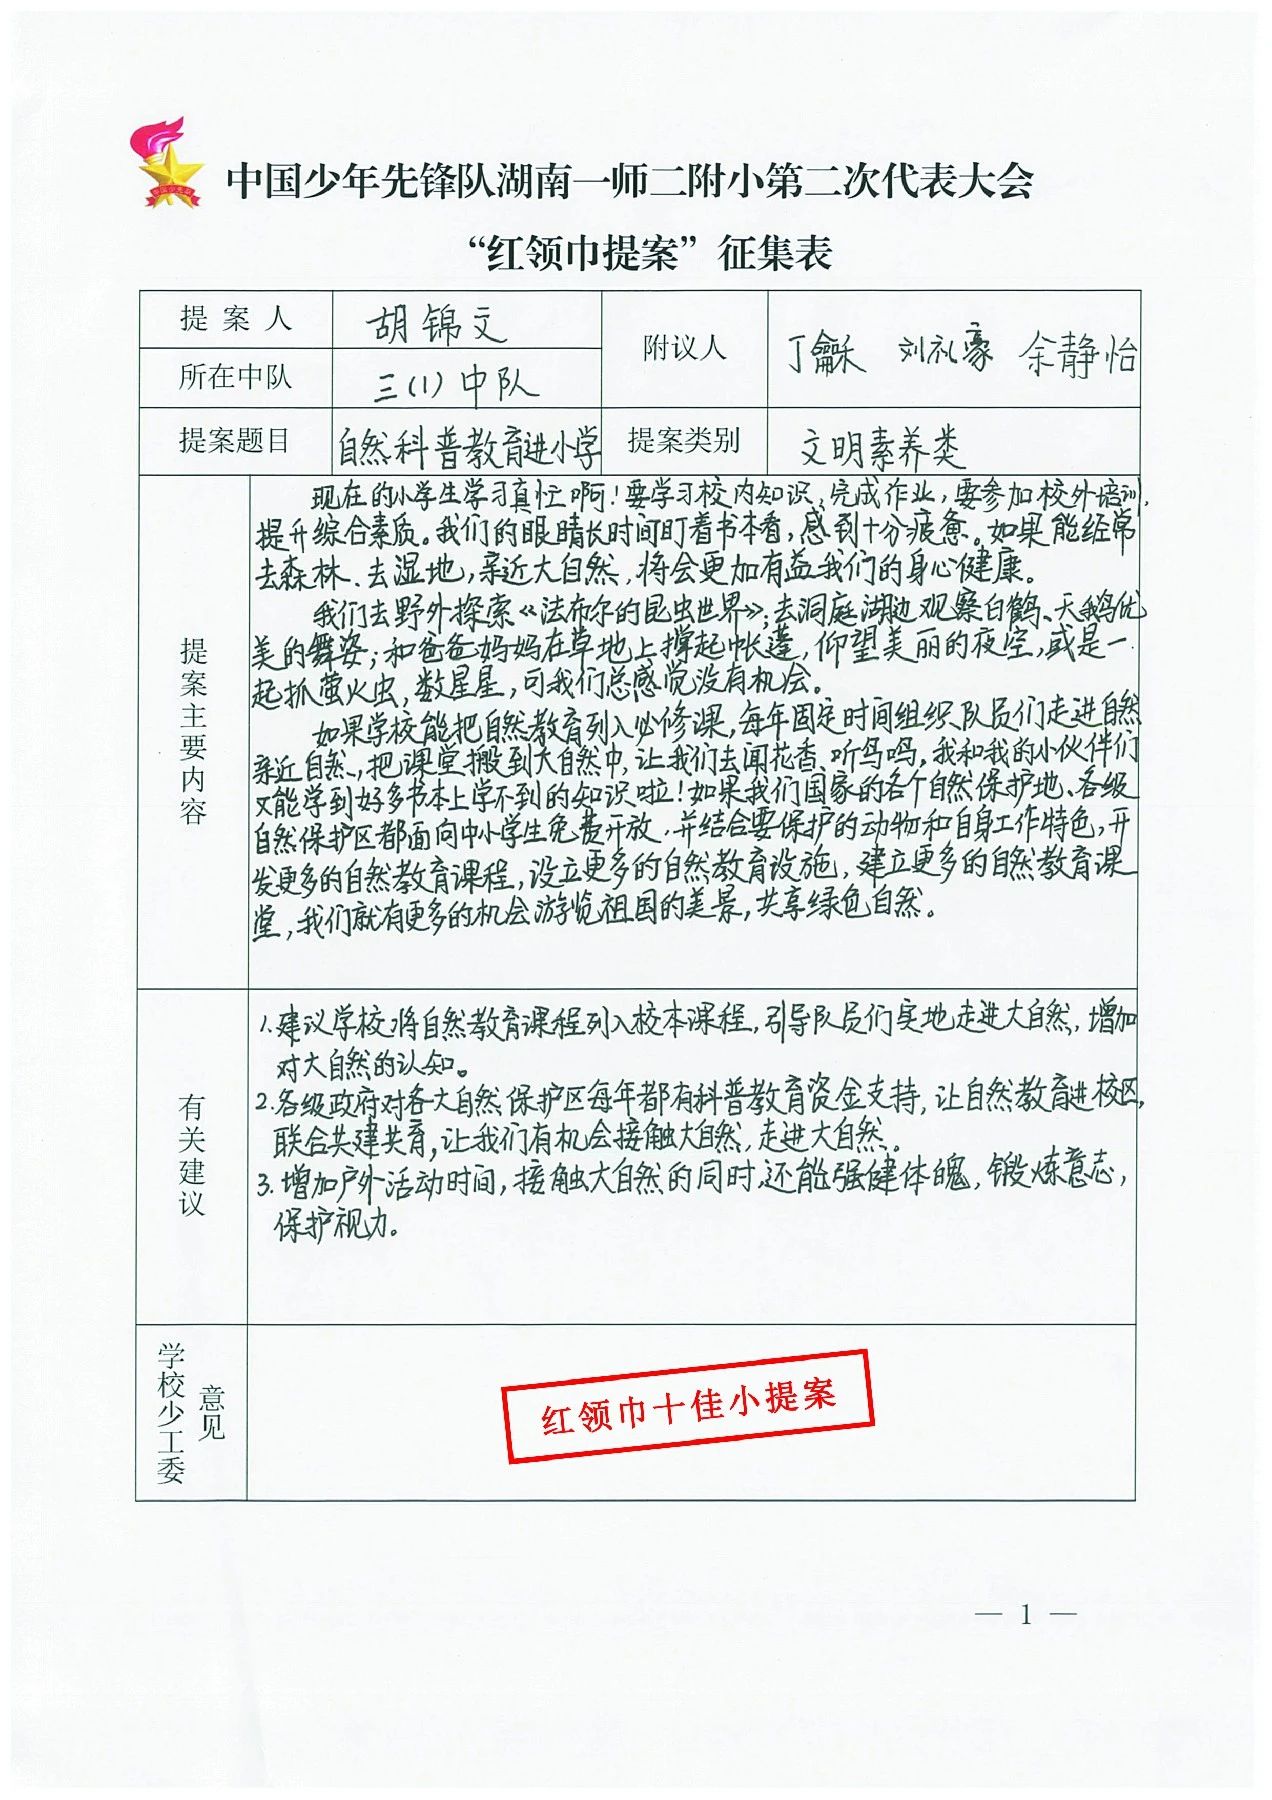 中国少年先锋队湖南一师二附小第二次代表大会
“红领巾提案”征集表
提案人
胡锦文
附议人
丁龢 刘礼豪 余静怡
所在中队
三(1)中队
提案题目
自然科普教育进小学
提案类别
文明素养类
提案主要内容
现在的小学生学习真忙啊！要学习校内知识，完成作业，要参加校外培训，
提升综合素质。我们的眼睛长时间盯着书本看，感到十分疲惫。如果能经常
去森林、去湿地，亲近大自然，将会更加有益我们的身心健康。
我们去野外探索《法布尔的昆虫世界》；去洞庭湖边观察白鹤、天鹅优
美的舞姿；和爸爸妈妈在草地上撑起帐篷，仰望美丽的夜空，或是一
起抓萤火虫，数星星，可我们总感觉没有机会。
如果学校能把自然教育列入必修课，每年固定时间组织队员们走进自然
亲近自然、，把课堂搬到大自然中，让我们去闻花香、听鸟鸣，我和我的小伙伴们
又能学到好多书本上学不到的知识啦！如果我们国家的各个自然保护地、各级
自然保护区都面向中小学生免费开放，并结合要保护的动物和自身工作特色，开
发更多的自然教育课程，设立更多的自然教育设施，建立更多的自然教育课
堂，我们就有更多的机会游览祖国的美景，共享绿色自然。
有关建议
1.建议学校将自然教育课程列入校本课程，引导队员们实地走进大自然，增加
对大自然的认知。
2.各级政府对各大自然保护区每年都有科普教育资金支持，让自然教育进校区，
联合共建共育，让我们有机会接触大自然，走进大自然。
3.增加户外活动时间，接触大自然的同时，还能强健体魄，锻炼意志，
保护视力。
学校少工委
意见
红领巾十佳小提案
— 1 —